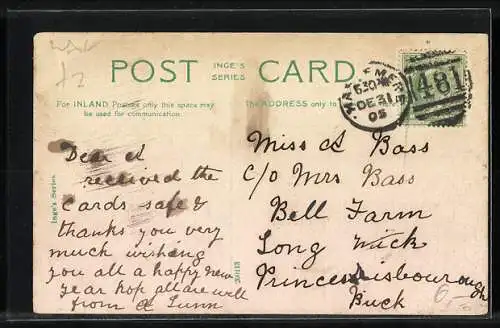 POST INGE'S SERIES CARD.
For INLAND Postage only this space may be used for communication.
The ADDRESS only to
HASLEMERE
630PM
DE 31
05
481
Dear A
received the
Cards safe &
thanks you very
much wishing
you all a happy new
year hop all are well
from A Lunn
Miss A Bass
C/o Mrs Bass
Bell Farm
Long Wick
Princes Risbourough
Buck
Inge's Series.